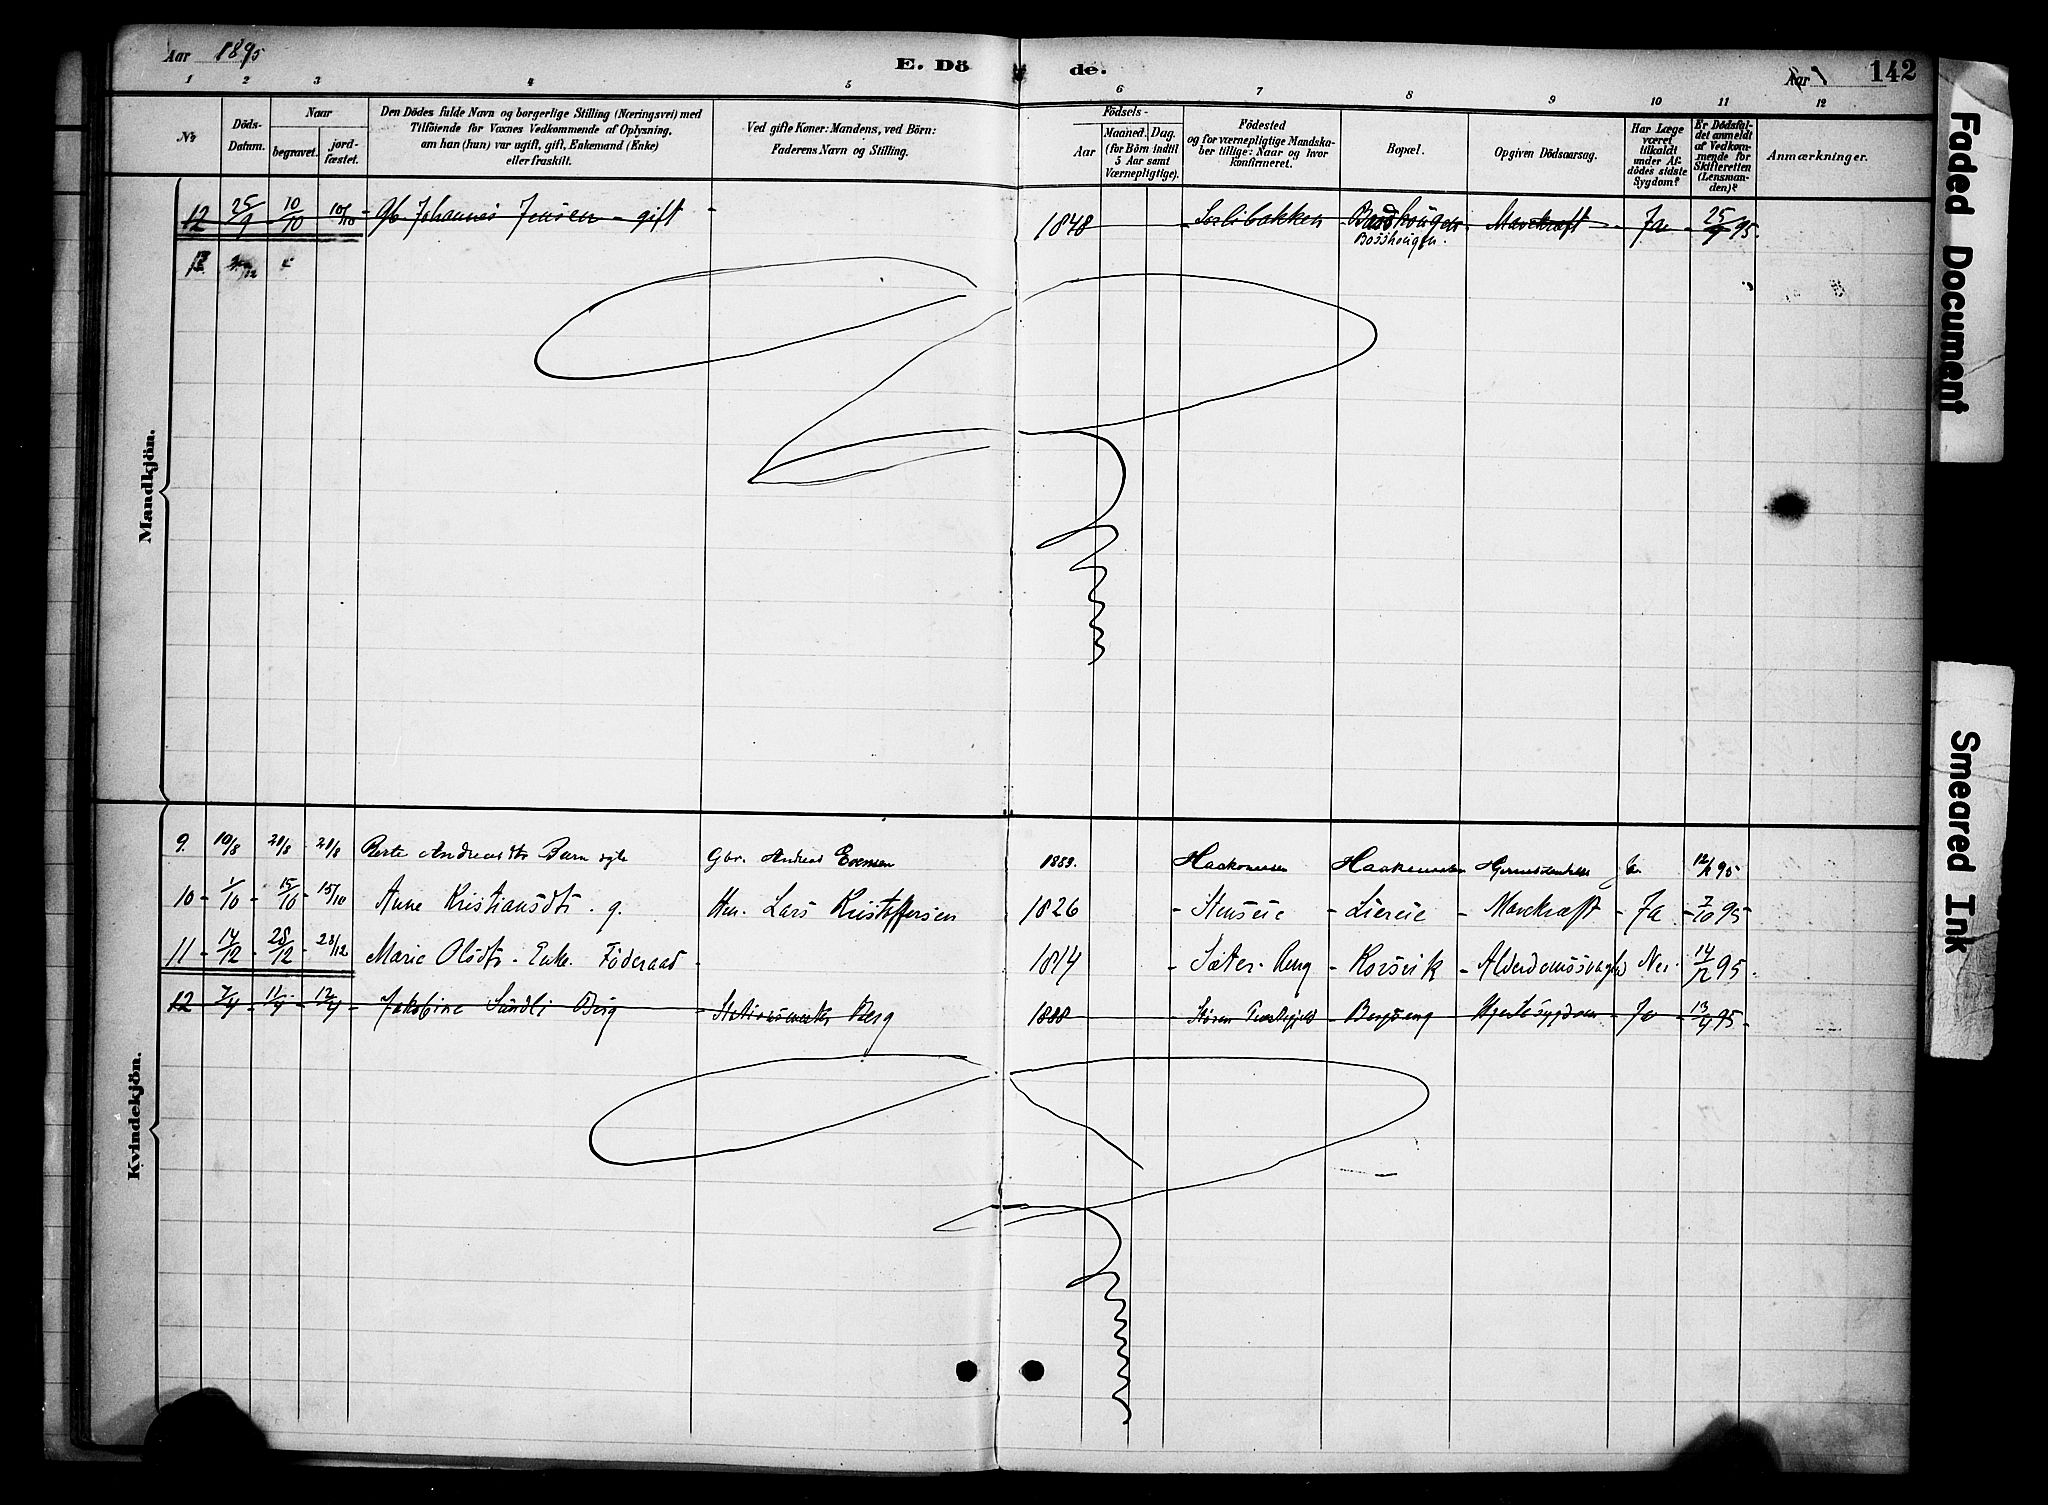 Aar 1895
E. Dö de.
Aar 142
1 2 3 4 5 6 7 8 9 10 11 12
No
Döds-Datum.
Naar
begravet.
jord-fæstet.
Den Dödes fulde Navn og borgerlige Stilling (Næringsvei) med
Tilföiende for Voxnes Vedkommende af Oplysning,
om han (hun) var ugift, gift, Enkemand (Enke)
eller fraskilt.
Ved gifte Koner: Mandens, ved Börn:
Faderens Navn og Stilling.
Födsels-
Aar
Maaned. Dag.
(for Börn indtil
5 Aar samt
Værnepligtige).
Födested
og for værnepligtige Mandska-
ber tillige: Naar og hvor
konfirmeret.
Bopæl.
Opgiven Dödsaarsag.
Har Læge
været
tilkaldt
under Af-
dödes sidste
Sygdom?
Er Dödsfal-
det anmeldt
af Vedkom-
mende for
Skifteretten
(Lensman-
den)?
Anmærkninger.
Mandkjön.
12 25/9 10/10 10/10 Gb. Johannes Jensen - gift - 1848 - Soslibakken - Mavekræft - Ja - 25/9 95.
Bosshougen.
Kvindekjön.
9. 10/8 20/8 20/8 Berte Andreasdtr Barn Gbr. Andreas Evensen 1889. Haakonsen 12/8 95
10 - 1/10 - 15/10 - 15/10 Anne Kristiansdtr. g. Hm. Lars Kristoffersen 1826 - Stenseie - Liereie - Mavekræft - Ja - 7/10 95
11 - 14/12 - 28/12 - 28/12 Marie Olsdtr. Enke. Föderaad - 1814 - Sæter. Reng - Korsvik - Alderdomssvaghed Nei. 14/12 95.
12 - 7/4 - 11/4 - 12/4 - Jakobine Sundli Berg Berg 1888 - Stören - Bergseng - Hjertesygdom - Ja - 13/4 95 -
Faded Document
Smeared Ink